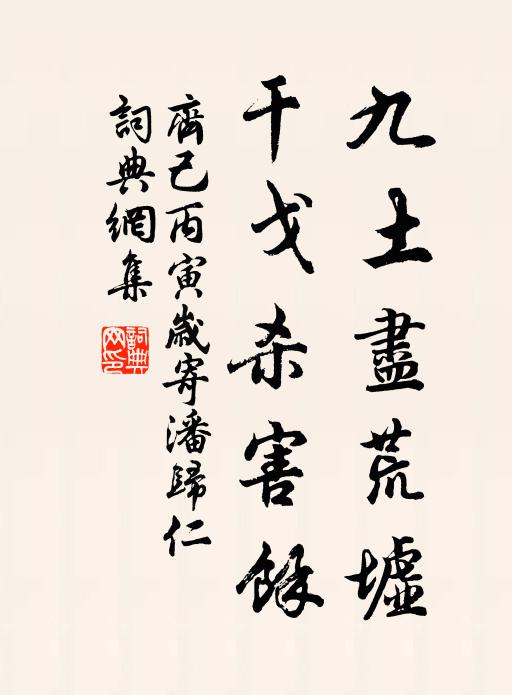 九土盡荒墟
干戈杀害餘
齊己丙寅歲寄潘歸仁
詞典網集
詞典網印